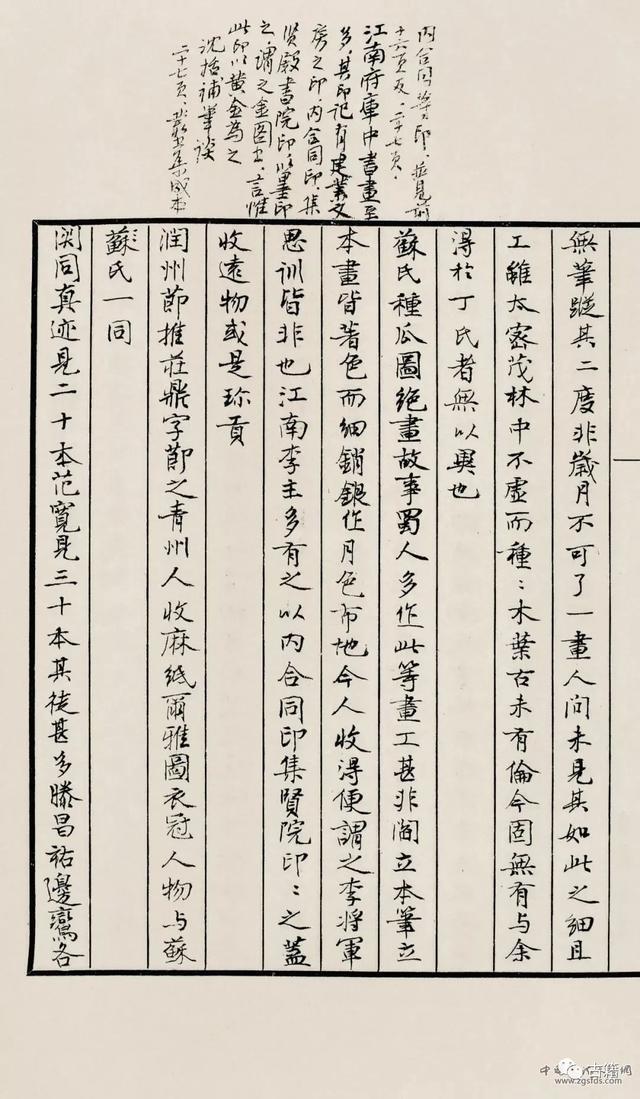 内合同等之印、並見前
十六頁反、二十七頁。
江南府庫中書畫至
多，其印記有建業文
房之印、内合同印、集
賢殿書院印以墨印
之，謂之金圖書，言惟
此印以黄金為之
沈括補筆談
二十七頁、叢書集成本
無筆蹤其二度非歲月不可了一畫人間未見其如此之細且
工雖太密茂林中不虚而種〻木葉古未有倫今固無有与余
淂於丁氏者無以異也
蘇氏種瓜圖絶畫故事蜀人多作此等畫工甚非閻立本筆立
本畫皆著色而細銷銀作月色布地今人收淂便謂之李將軍
思訓皆非也江南李主多有之以内合同印集賢院印〻之蓋
收遠物或是珎貢
潤州節推莊鼎字節之青州人收麻紙爾雅圖衣冠人物与蘇
蘇氏一同
関同真迹見二十本范寬見三十本其徒甚多滕昌祐邊鸞各
古籍
www.zgsfds.com